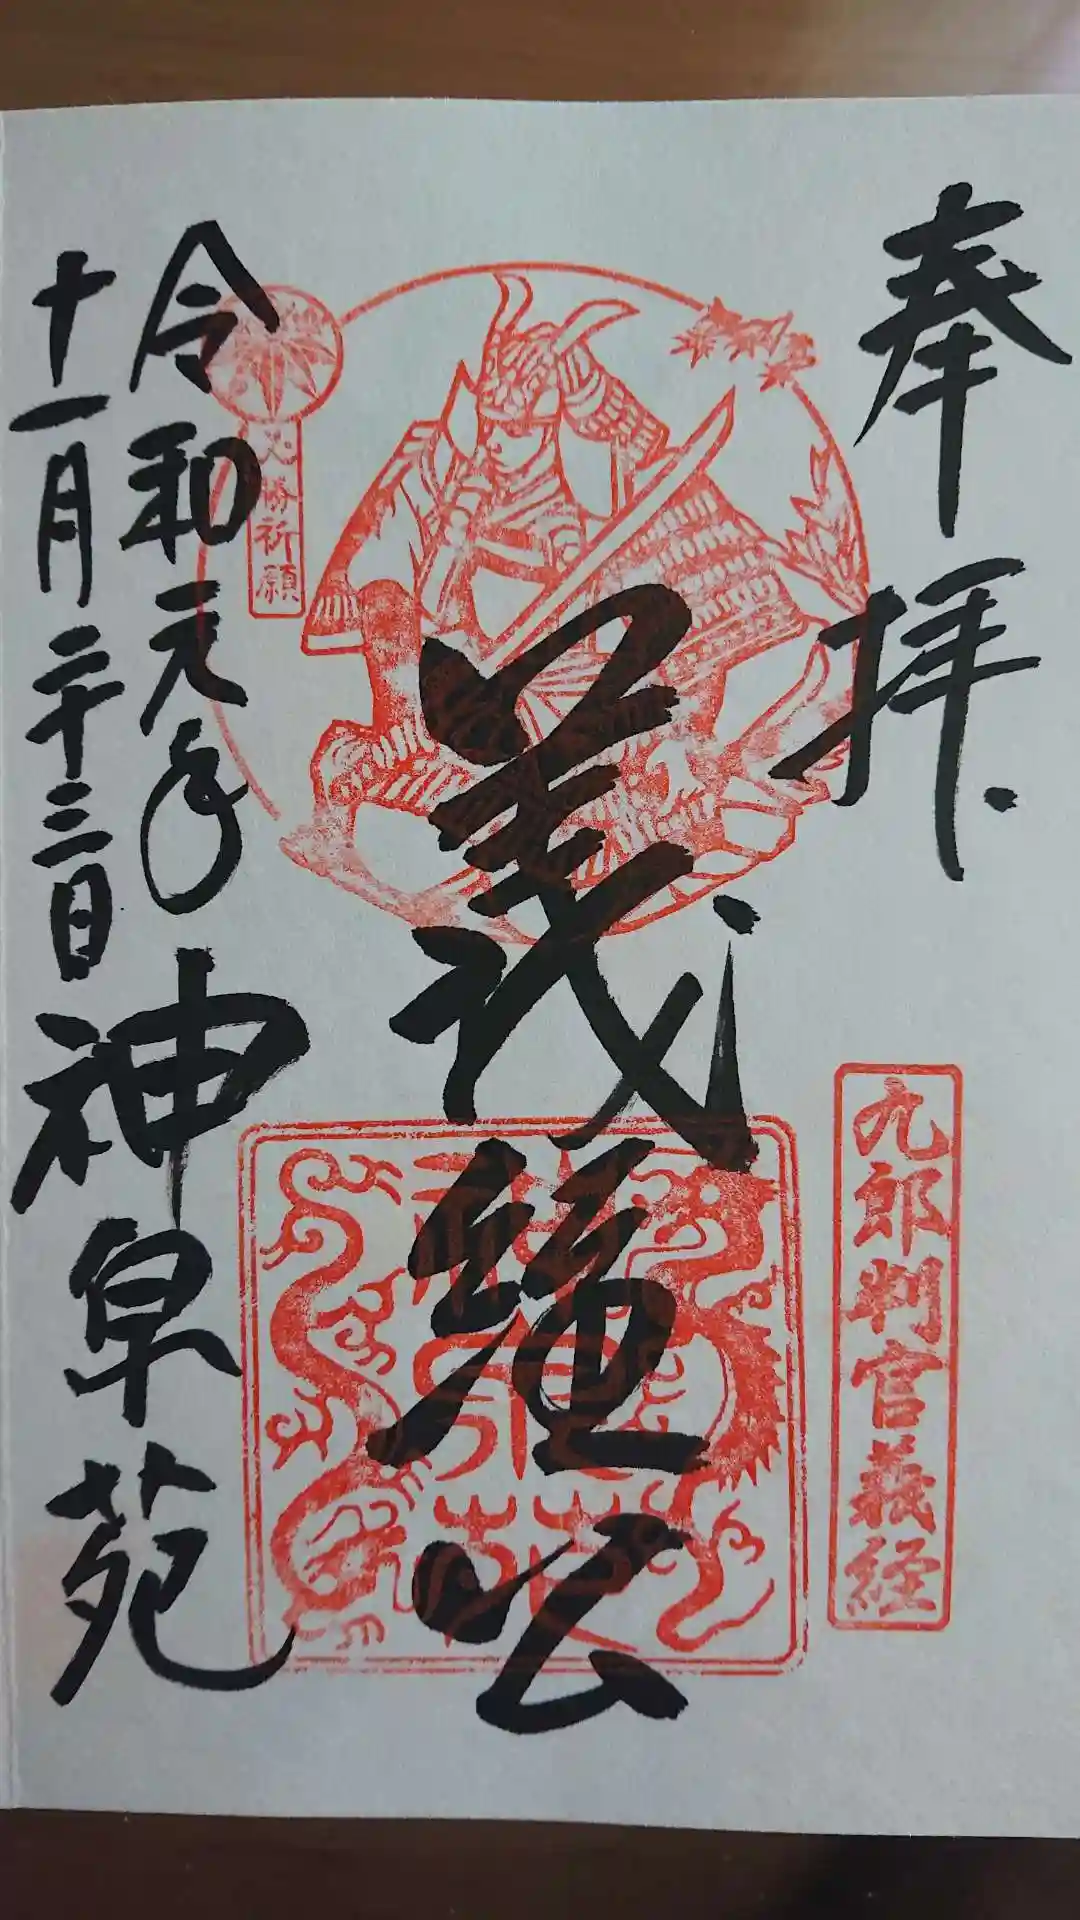 奉拝
九郎判官義経
義経公
必勝祈願
令和元年
十一月二十三日
神皁苑